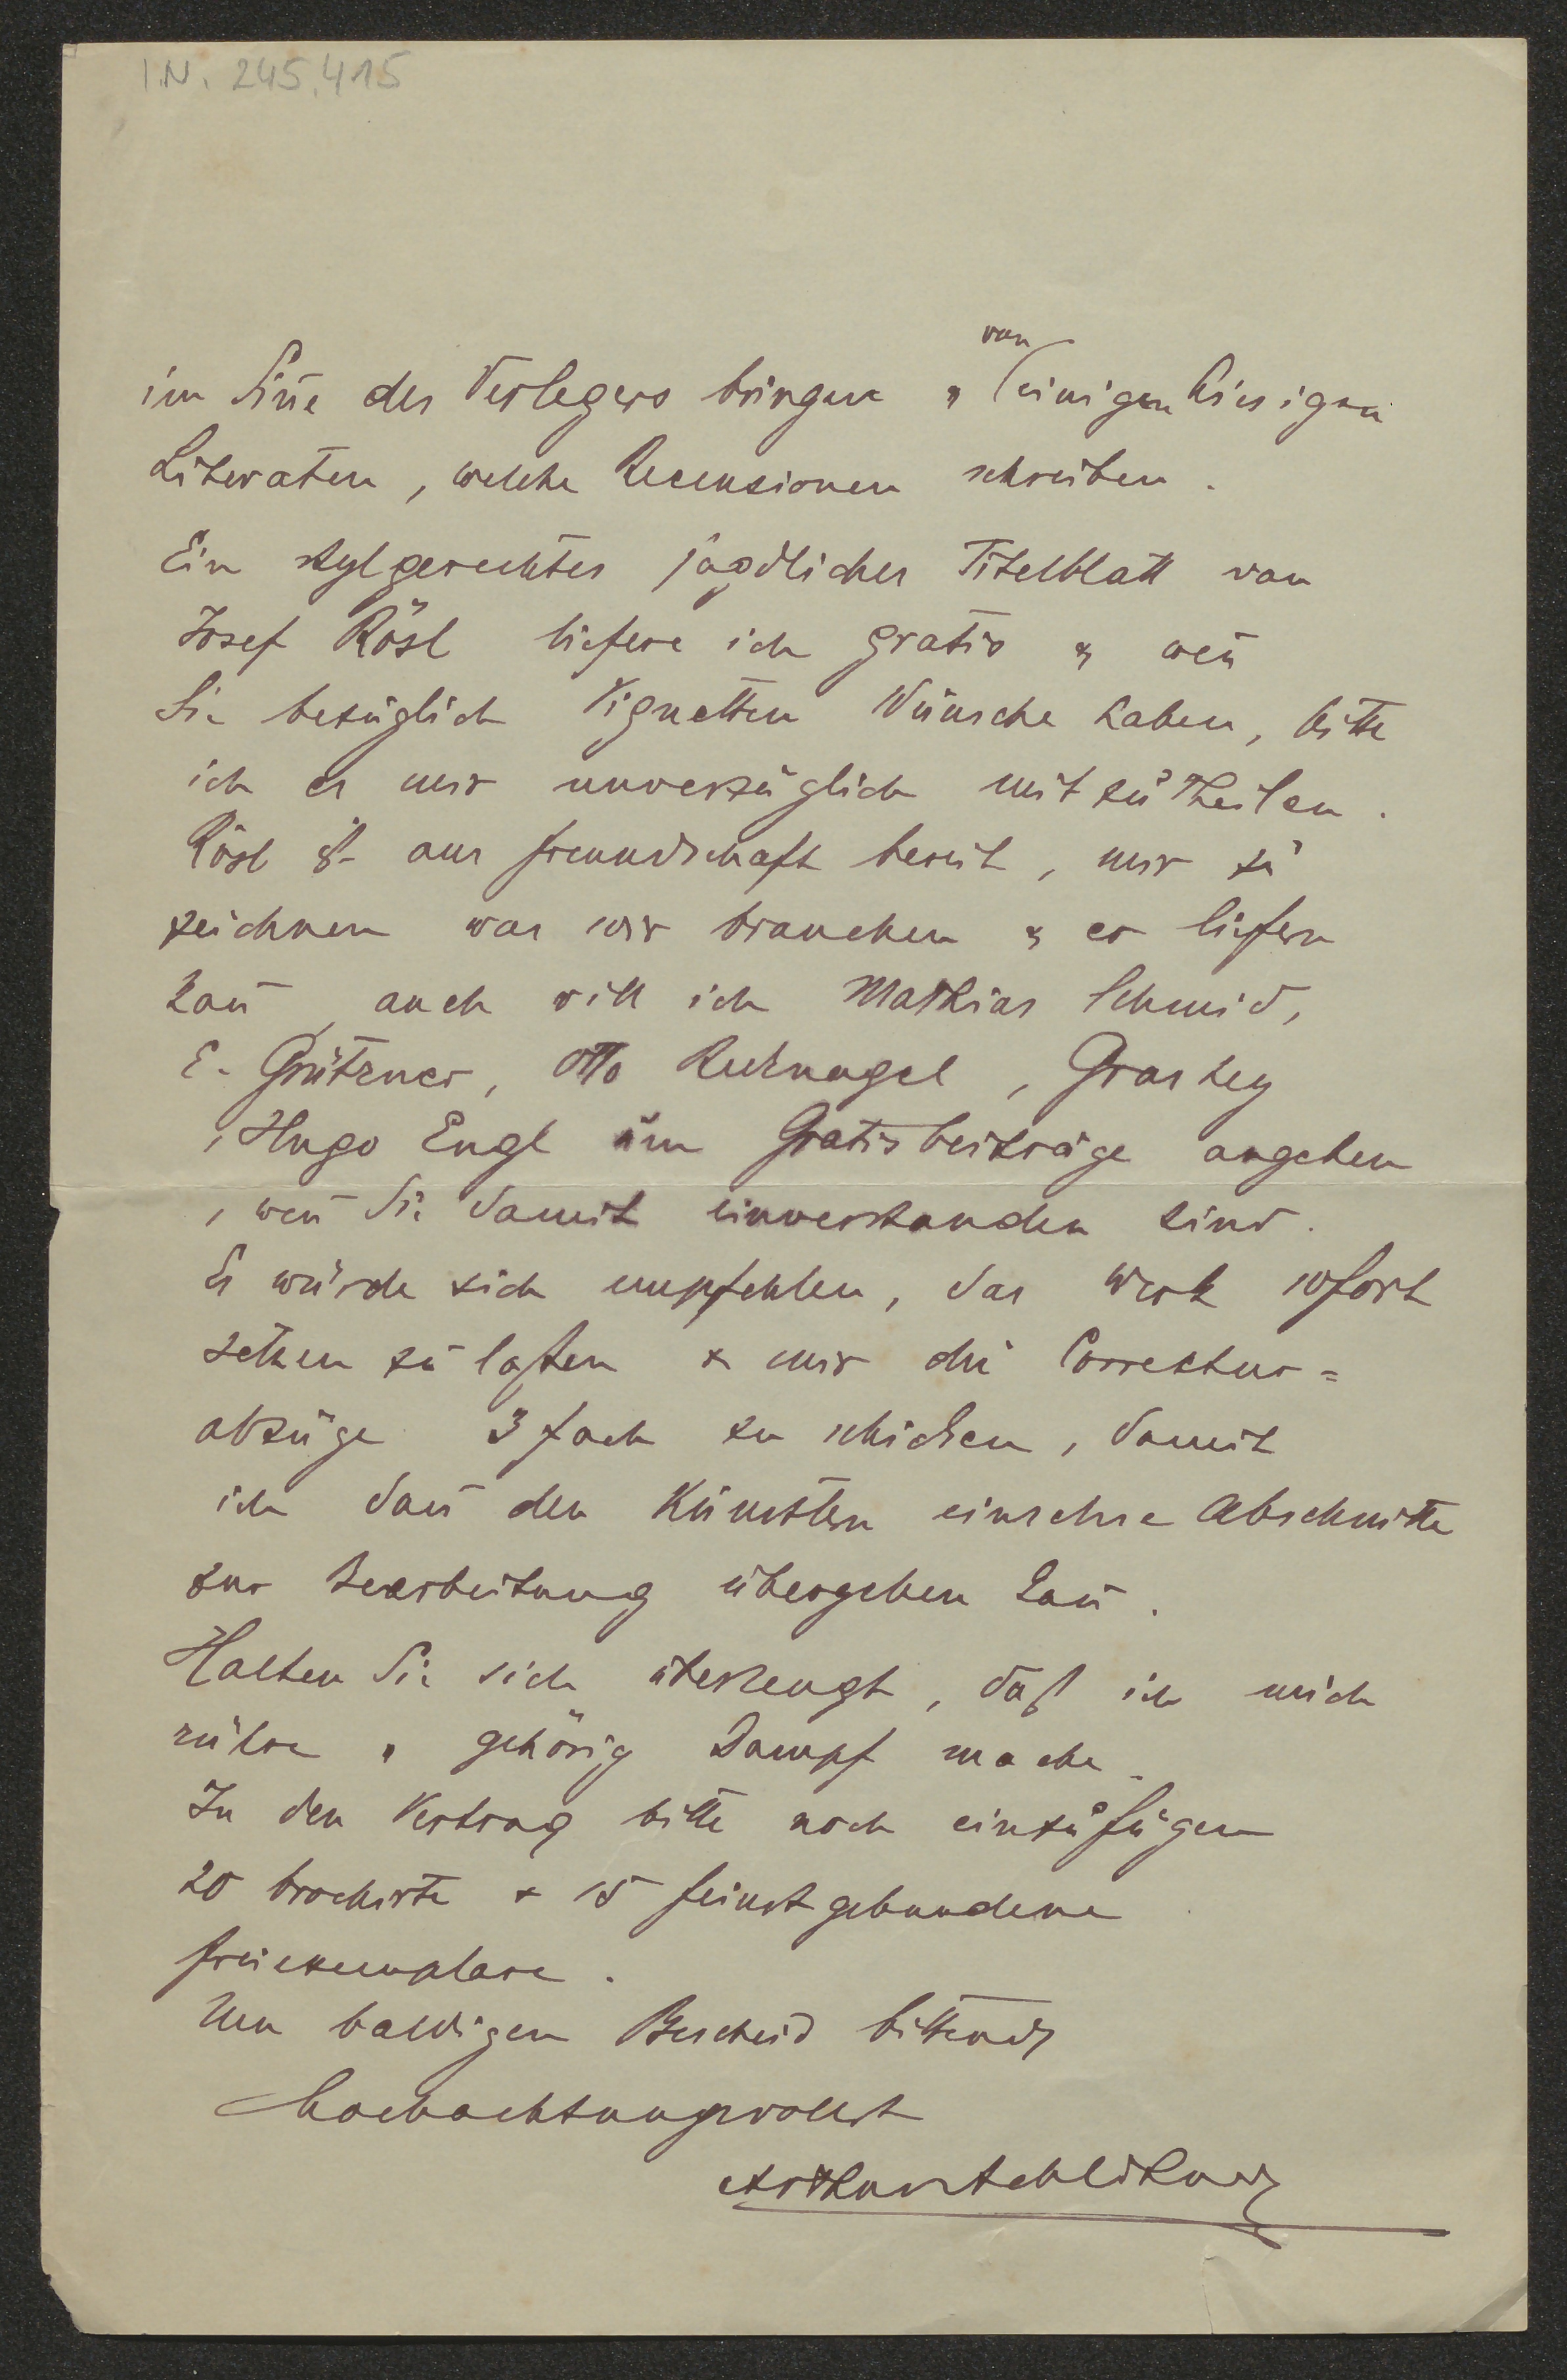 I.N. 245.415
von
im Sin̄e des Verlegers bringen & einigen hiesigen
Literaten, welche Recensionen schreiben.
Ein stylgerechtes jagdliches Titelblatt von
Josef Rösl liefere ich gratis & wen̄
Sie bezüglich Vignetten Wünsche haben, bitte
ich es mir unverzüglich mitzutheilen.
Rösl ist aus Freundschaft bereit, mir zu
zeichnen was wir brauchen & er liefern
kan̄, auch will ich Mathias Schmid,
E. Grützner, Otto Recknagel, Grashey
, Hugo Engl um Gratisbeiträge angehen
, wen̄ Sie damit einverstanden sind.
Es würde sich empfehlen, das Werk sofort
setzen zu laßen & mir die Correktur=
abzüge 3fach zu schicken, damit
ich dan̄ den Künstlern einzelne Abschnitte
zur Bearbeitung übergeben kan̄.
Halten Sie sich überzeugt, daß ich mich
rühre & gehörig Dampf mache.
In den Vertrag bitte noch einzufügen
20 brochirte & 15 feinst gebundene
Freiexemplare.
Um baldigen Bescheid bittend
hochachtungsvollst
Arthur Achleitner